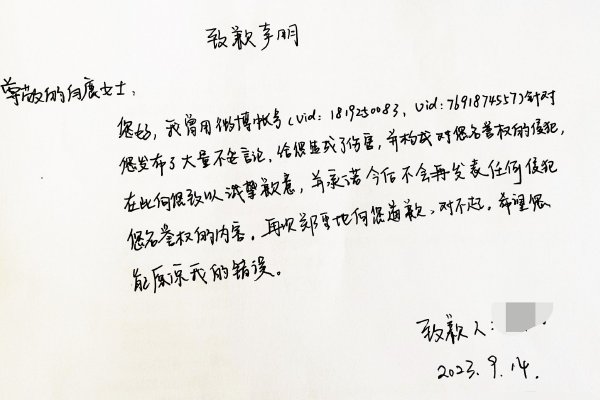 致歉声明
尊敬的白鹿女士：
您好，我曾用微博帐号（uid: 1819250083，uid: 7691874557）针对
您发布了大量不妥言论，给您造成了伤害，并构成对您名誉权的侵犯，
在此向您致以诚挚歉意，并承诺今后不会再发表任何侵犯
您名誉权的内容。再次郑重地向您道歉，对不起。希望您
能原谅我的错误。
致歉人：
2023.9.14.